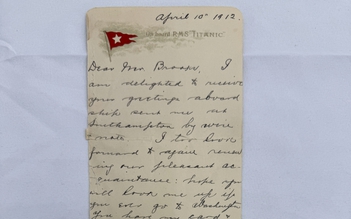 April 10th 1912.
ON BOARD R.M.S. "TITANIC"
Dear Mrs. I
am delighted to receive
your greetings aboard
ship sent me at
Southampton by wire
& note. I too look
forward to again renew
ing our pleasant ac
quaintance: hope you
will look me up if
you ever go to Washington
You have my card &